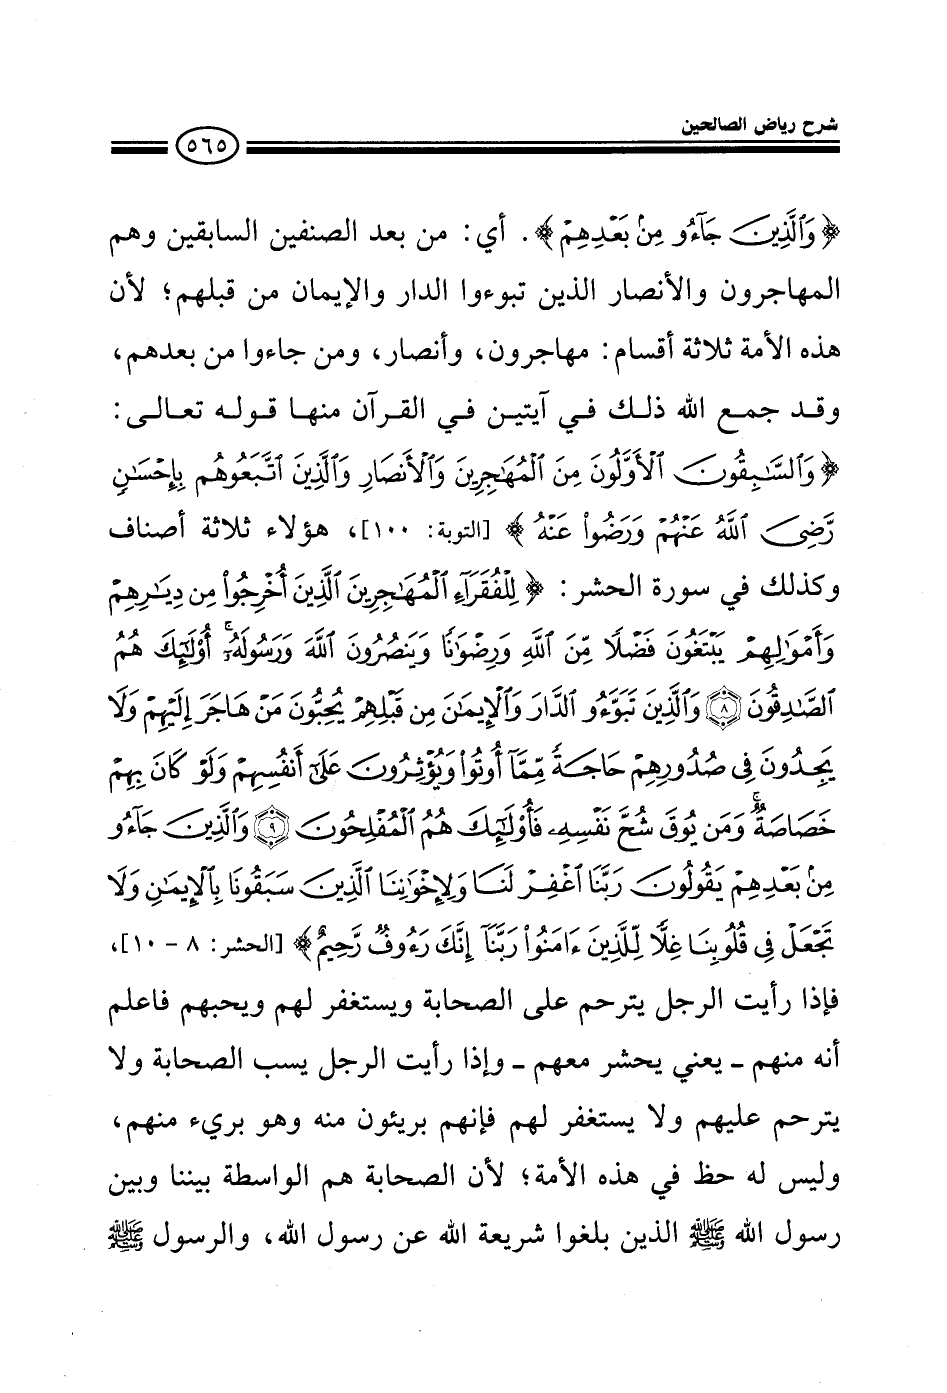 شرح رياض الصالحين
٥٦٥
﴿وَٱلَّذِينَ جَآءُو مِنۢ بَعۡدِهِمۡ﴾. أي: من بعد الصنفين السابقين وهم
المهاجرون والأنصار الذين تبوءوا الدار والإيمان من قبلهم؛ لأن
هذه الأمة ثلاثة أقسام: مهاجرون، وأنصار، ومن جاءوا من بعدهم،
وقد جمع الله ذلك في آيتين في القرآن منها قوله تعالى:
﴿وَٱلسَّٰبِقُونَ ٱلۡأَوَّلُونَ مِنَ ٱلۡمُهَٰجِرِينَ وَٱلۡأَنصَارِ وَٱلَّذِينَ ٱتَّبَعُوهُم بِإِحۡسَٰنٖ
رَّضِيَ ٱللَّهُ عَنۡهُمۡ وَرَضُواْ عَنۡهُ﴾ [التوبة: ١٠٠]، هؤلاء ثلاثة أصناف
وكذلك في سورة الحشر: ﴿لِلۡفُقَرَآءِ ٱلۡمُهَٰجِرِينَ ٱلَّذِينَ أُخۡرِجُواْ مِن دِيَٰرِهِمۡ
وَأَمۡوَٰلِهِمۡ يَبۡتَغُونَ فَضۡلٗا مِّنَ ٱللَّهِ وَرِضۡوَٰنٗا وَيَنصُرُونَ ٱللَّهَ وَرَسُولَهُۥٓۚ أُوْلَٰٓئِكَ هُمُ
ٱلصَّٰدِقُونَ ٨ وَٱلَّذِينَ تَبَوَّءُو ٱلدَّارَ وَٱلۡإِيمَٰنَ مِن قَبۡلِهِمۡ يُحِبُّونَ مَنۡ هَاجَرَ إِلَيۡهِمۡ وَلَا
يَجِدُونَ فِي صُدُورِهِمۡ حَاجَةٗ مِّمَّآ أُوتُواْ وَيُؤۡثِرُونَ عَلَىٰٓ أَنفُسِهِمۡ وَلَوۡ كَانَ بِهِمۡ
خَصَاصَةٞۚ وَمَن يُوقَ شُحَّ نَفۡسِهِۦ فَأُوْلَٰٓئِكَ هُمُ ٱلۡمُفۡلِحُونَ ٩ وَٱلَّذِينَ جَآءُو
مِنۢ بَعۡدِهِمۡ يَقُولُونَ رَبَّنَا ٱغۡفِرۡ لَنَا وَلِإِخۡوَٰنِنَا ٱلَّذِينَ سَبَقُونَا بِٱلۡإِيمَٰنِ وَلَا
تَجۡعَلۡ فِي قُلُوبِنَا غِلّٗا لِّلَّذِينَ ءَامَنُواْ رَبَّنَآ إِنَّكَ رَءُوفٞ رَّحِيمٌ﴾ [الحشر: ٨ - ١٠]،
فإذا رأيت الرجل يترحم على الصحابة ويستغفر لهم ويحبهم فاعلم
أنه منهم - يعني يحشر معهم - وإذا رأيت الرجل يسب الصحابة ولا
يترحم عليهم ولا يستغفر لهم فإنهم بريئون منه وهو بريء منهم،
وليس له حظ في هذه الأمة؛ لأن الصحابة هم الواسطة بيننا وبين
رسول الله ﷺ الذين بلغوا شريعة الله عن رسول الله، والرسول ﷺ